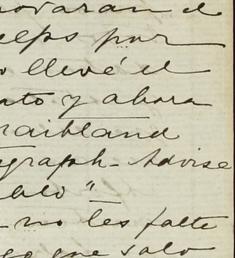 novaran el
elps por
llevé el
ato y ahora
raibland
graph - Advise
blo"
no les falte
go que solo